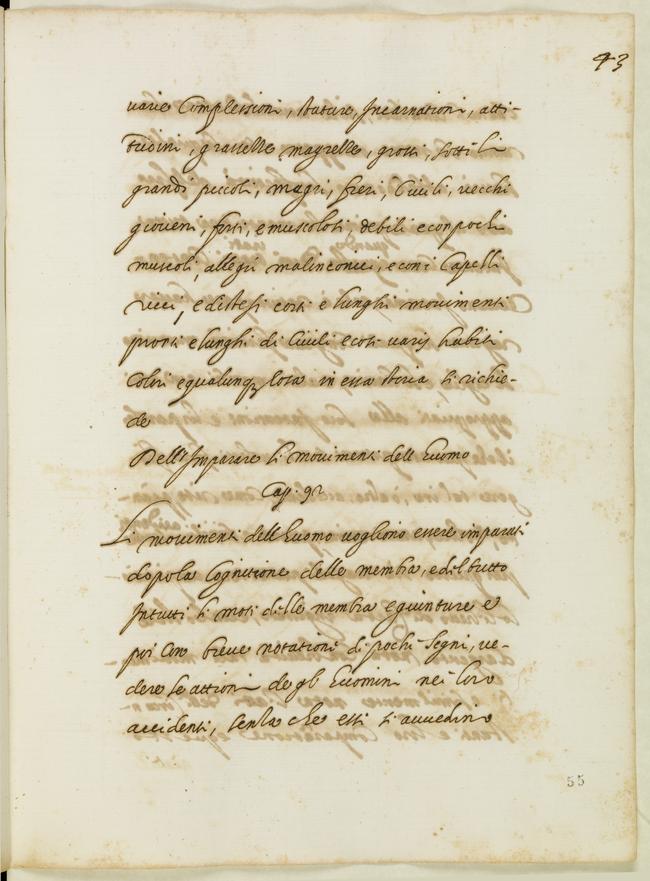 43
varie Complessioni, stature, Incarnationi, atti-
tudini, grasselle magrelle, grossi, sottili
grandi piccoli, magri, fieri, Ciuili, vecchi
gioueni, forti, e muscolosi, debili e con pochi
muscoli, allegri malinconici, e con i Capelli
ricci, e distesi corti e lunghi mouimenti
pronti e lunghi di Ciuili e cosi varij habiti
Colori e qualunq cosa in essa storia si richie-
de
Dell'Imparare li mouimenti dell Euomo
Cap. 92
Li mouimenti dell Euomo uogliono essere imparati
dopo la Cognitione delle membra, e del tutto
In tutti li moti delle membra e giunture e
poi con breue notatione di pochi segni, ve-
dere le attioni de gli Euomini nei loro
accidenti, senza che essi si auuedino
55